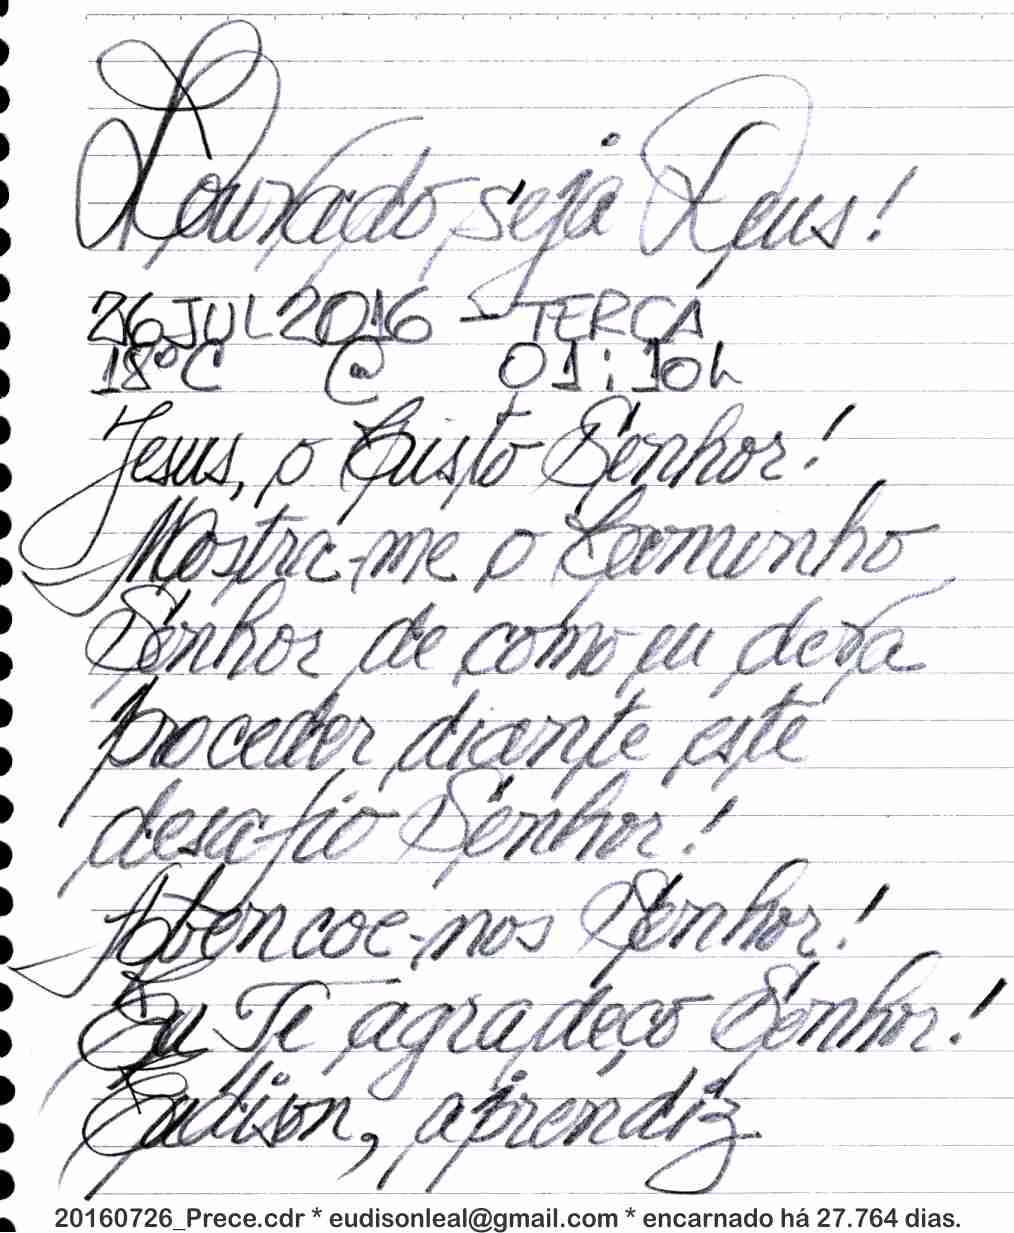 Louvado seja Deus!
26 JUL 2016 - TERÇA
18°C @ 01:10h
Jesus, o Cristo Senhor!
Mostra-me o Caminho
Senhor de como eu deva
proceder diante este
desafio Senhor!
Abençoe-nos Senhor!
Eu Te agradeço Senhor!
Eudison, aprendiz
20160726_Prece.cdr * eudisonleal@gmail.com * encarnado há 27.764 dias.